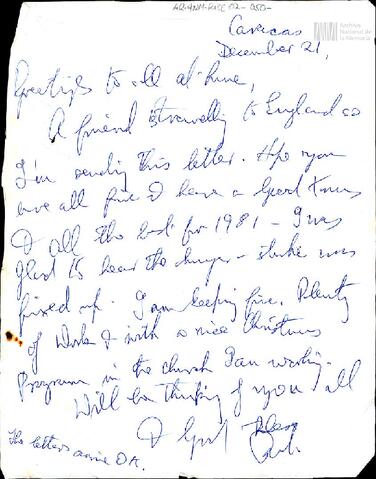 AR-ANM-PICC 02-050-
Archivo
Nacional de
la Memoria
Caracas
December 21,
Greetings to all at home,
A friend is travelling to England so
I'm sending this letter. Hope you
are all fine & have a Good Xmas
& all the best for 1981 - I was
glad to hear the hunger-strike was
fixed up. I am keeping fine. Plenty
of work & with a nice Christmas
Program in the church I am working.
Will be thinking of you all
& God Bless
The letters arrive O.K.